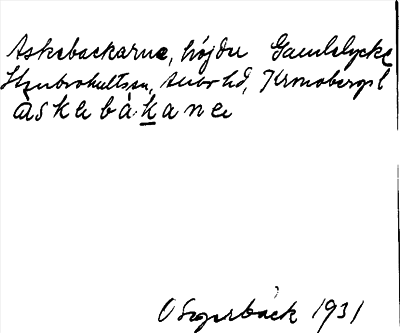 Askebackarna, höjder Gamlalycke
Stenbrohults sn, Allbo hd, Kronobergs l
askebàkane
O Segerbäck 1931